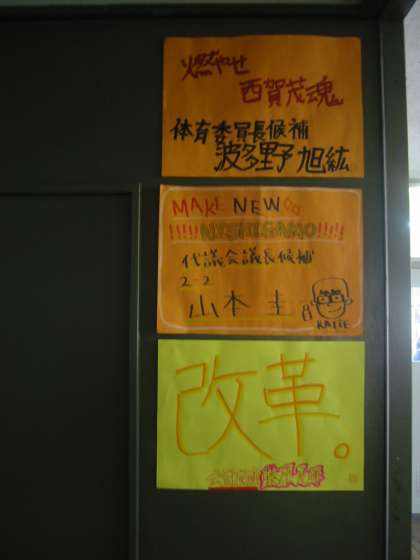 燃やせ
西賀茂魂
体育委員長候補
波多野 旭紘
MAKE NEW
!!!!!NISHIGAMO!!!!!
代議会議長候補
2-2
山本 圭
KATIE
改革。